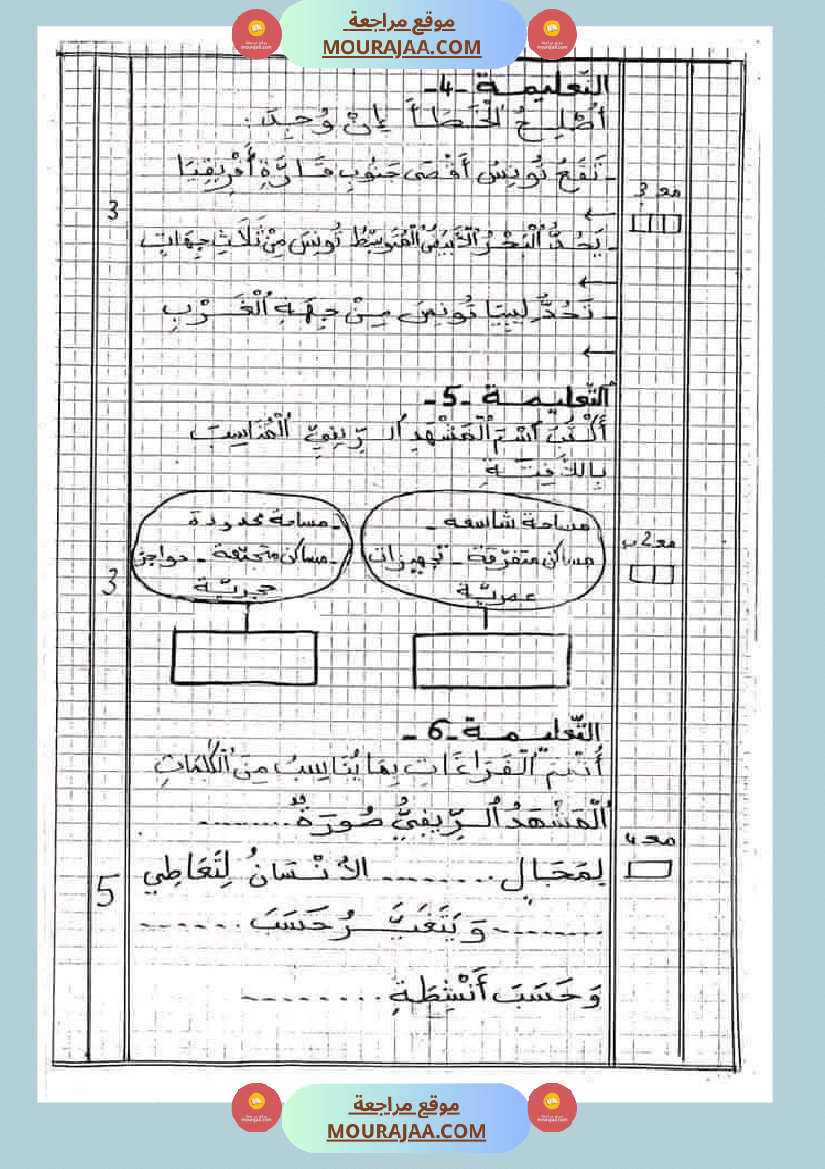 موقع مراجعة
MOURAJAA.COM
التّعليمـــة -4-
أُصْلِحُ الْخَطَأَ إِنْ وُجِدَ :
- تَقَعُ تُونِسُ أَقْصَى جَنُوبِ قَارَّةِ أَفْرِيقِيَا
مع 3
←
3
- يَحُدُّ الْبَحْرُ الْأَبْيَضُ الْمُتَوَسِّطُ تُونِسَ مِنْ ثَلَاثِ جِهَاتٍ
←
- تَحُدُّ لِيبِيَا تُونِسَ مِنْ جِهَةِ الْغَرْبِ
←
التّعليمـــة -5-
أَكْتُبُ اسْمَ الْمَشْهَدِ الرِّيفِيِّ الْمُنَاسِبَ
بِاللَّافِتَةِ
مساحة شاسعة -
مساكن متفرّقة - تجهيزات
عصريّة
- مساحة محدودة
- مساكن مجتمعة - حواجز
حجريّة
مع 2ب
3
التّعليمـــة -6-
أُتَمِّمُ الْفَرَاغَاتِ بِمَا يُنَاسِبُ مِنَ الْكَلِمَاتِ
الْمَشْهَدُ الرِّيفِيُّ صُورَةٌ ........
مع 4
لِمَجَالِ ........ الْإِنْسَانُ لِتَعَاطِي
5
........ وَيَتَغَيَّرُ حَسَبَ ........
وَحَسَبَ أَنْشِطَةِ ........
موقع مراجعة
MOURAJAA.COM